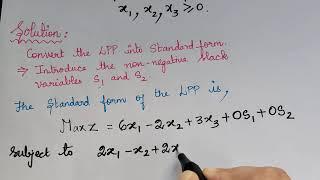 x₁, x₂, x₃ ⩾ 0.
Solution:
Convert the LPP into Standard form.
⇒ Introduce the non-negative slack
variables S₁ and S₂.
The Standard form of the LPP is,
Max Z = 6x₁ - 2x₂ + 3x₃ + 0S₁ + 0S₂
Subject to 2x₁ - x₂ + 2x